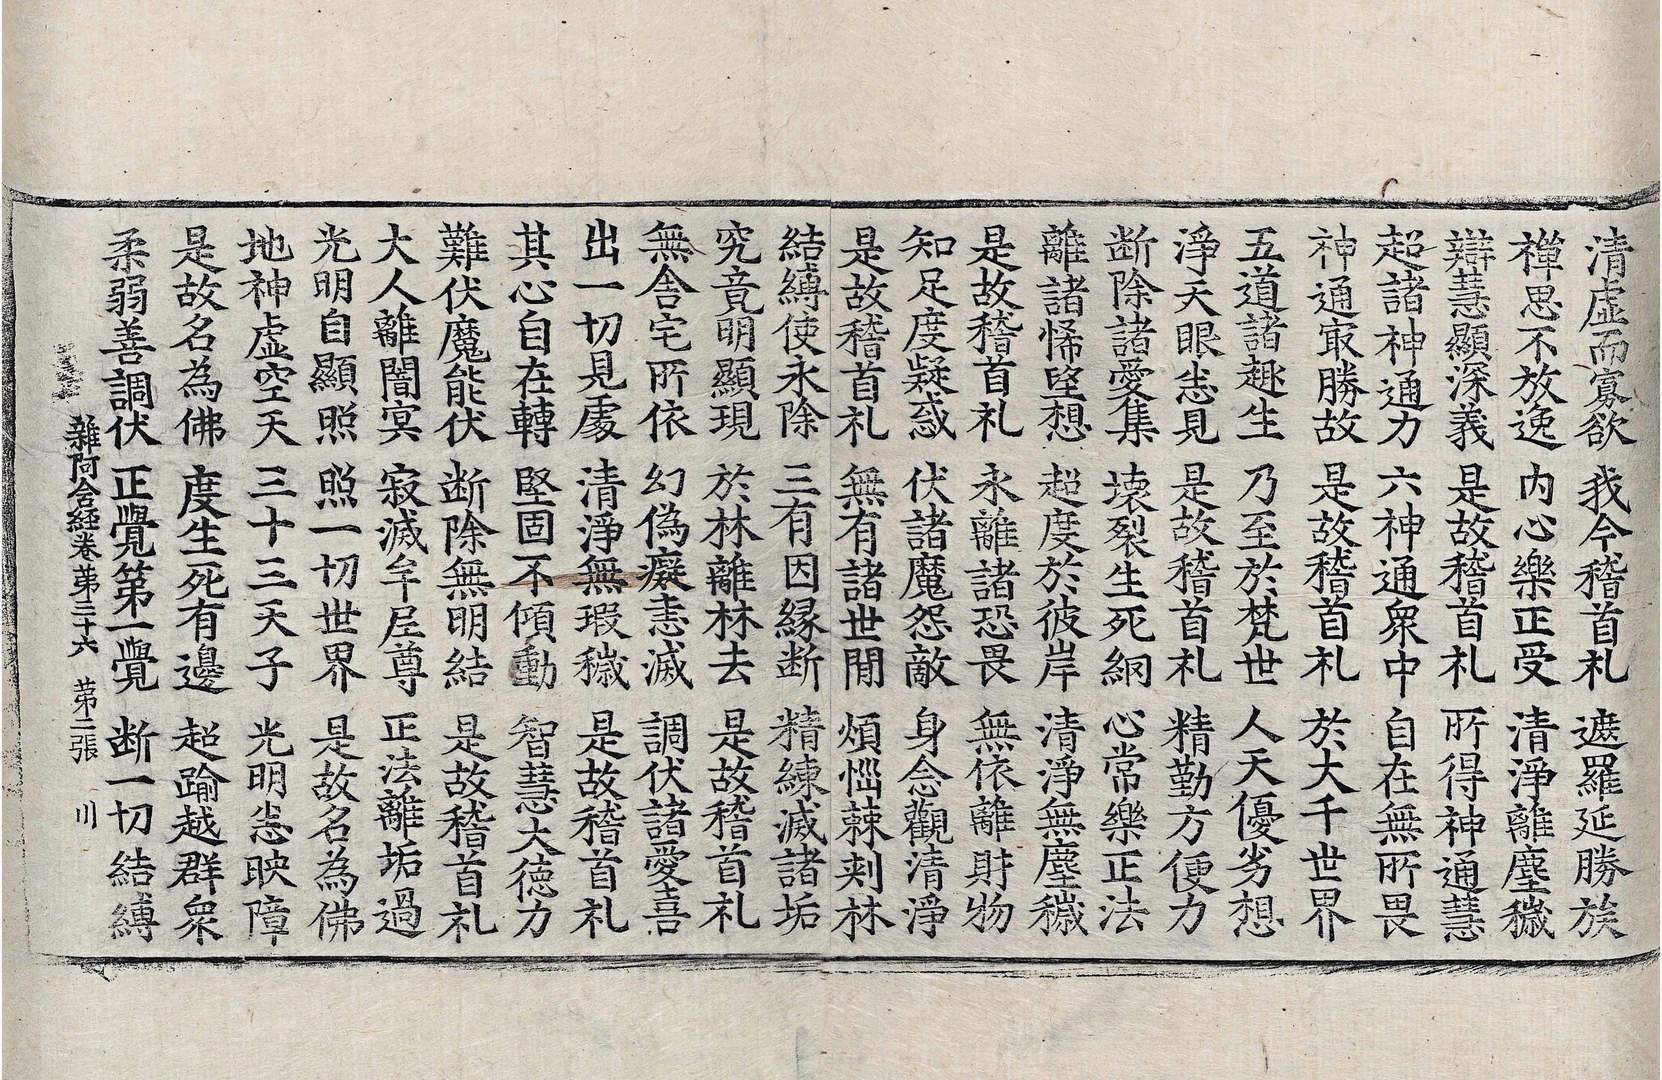 清虛而寡欲　我今稽首礼　遮羅延勝族
禅思不放逸　内心樂正受　清淨離塵穢
辯慧顯深義　是故稽首礼　所得神通慧
超諸神通力　六神通衆中　自在無所畏
神通㝡勝故　是故稽首礼　於大千世界
五道諸趣生　乃至於梵世　人天優劣想
淨天眼悉見　是故稽首礼　精勤方便力
断除諸愛集　壊裂生死網　心常樂正法
離諸悕望想　超度於彼岸　清淨無塵穢
是故稽首礼　永離諸恐畏　無依離財物
知足度疑惑　伏諸魔怨敵　身念觀清淨
是故稽首礼　無有諸世間　煩惱棘刾林
結縛使永除　三有因縁断　精練滅諸垢
究竟明顯現　於林離林去　是故稽首礼
無舎宅所依　幻偽癡恚滅　調伏諸愛喜
出一切見處　清淨無瑕穢　是故稽首礼
其心自在轉　堅固不傾動　智慧大徳力
難伏魔能伏　断除無明結　是故稽首礼
大人離闇冥　寂滅牟尼尊　正法離垢過
光明自顯照　照一切世界　是故名為佛
地神虛空天　三十三天子　光明悉映障
是故名為佛　度生死有邊　超踰越群衆
柔弱善調伏　正覺第一覺　断一切結縛
雜阿含経卷苐三十六　苐二張　川